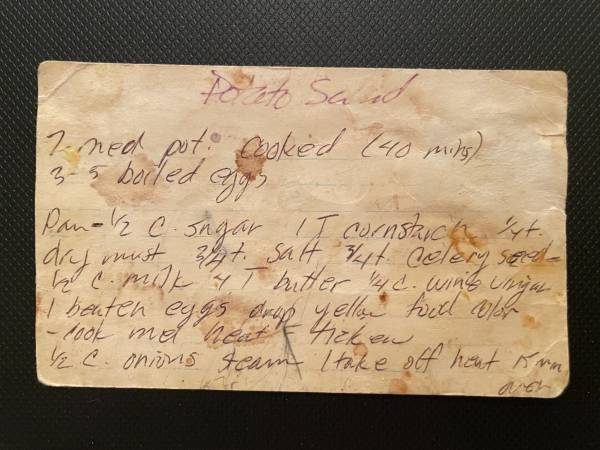 Potato Salad
7 med pot. cooked (40 mins)
3-5 boiled eggs
Pan - 1/2 c. sugar 1 T cornstarch 1/4 t.
dry must 3/4 t. salt 3/4 t. Celery seed -
1/2 c. milk 1/4 T butter 1/4 c. wine
1 beaten eggs drop yellow food color
- cook med heat -
1/2 c. onions steam take off heat 15 min